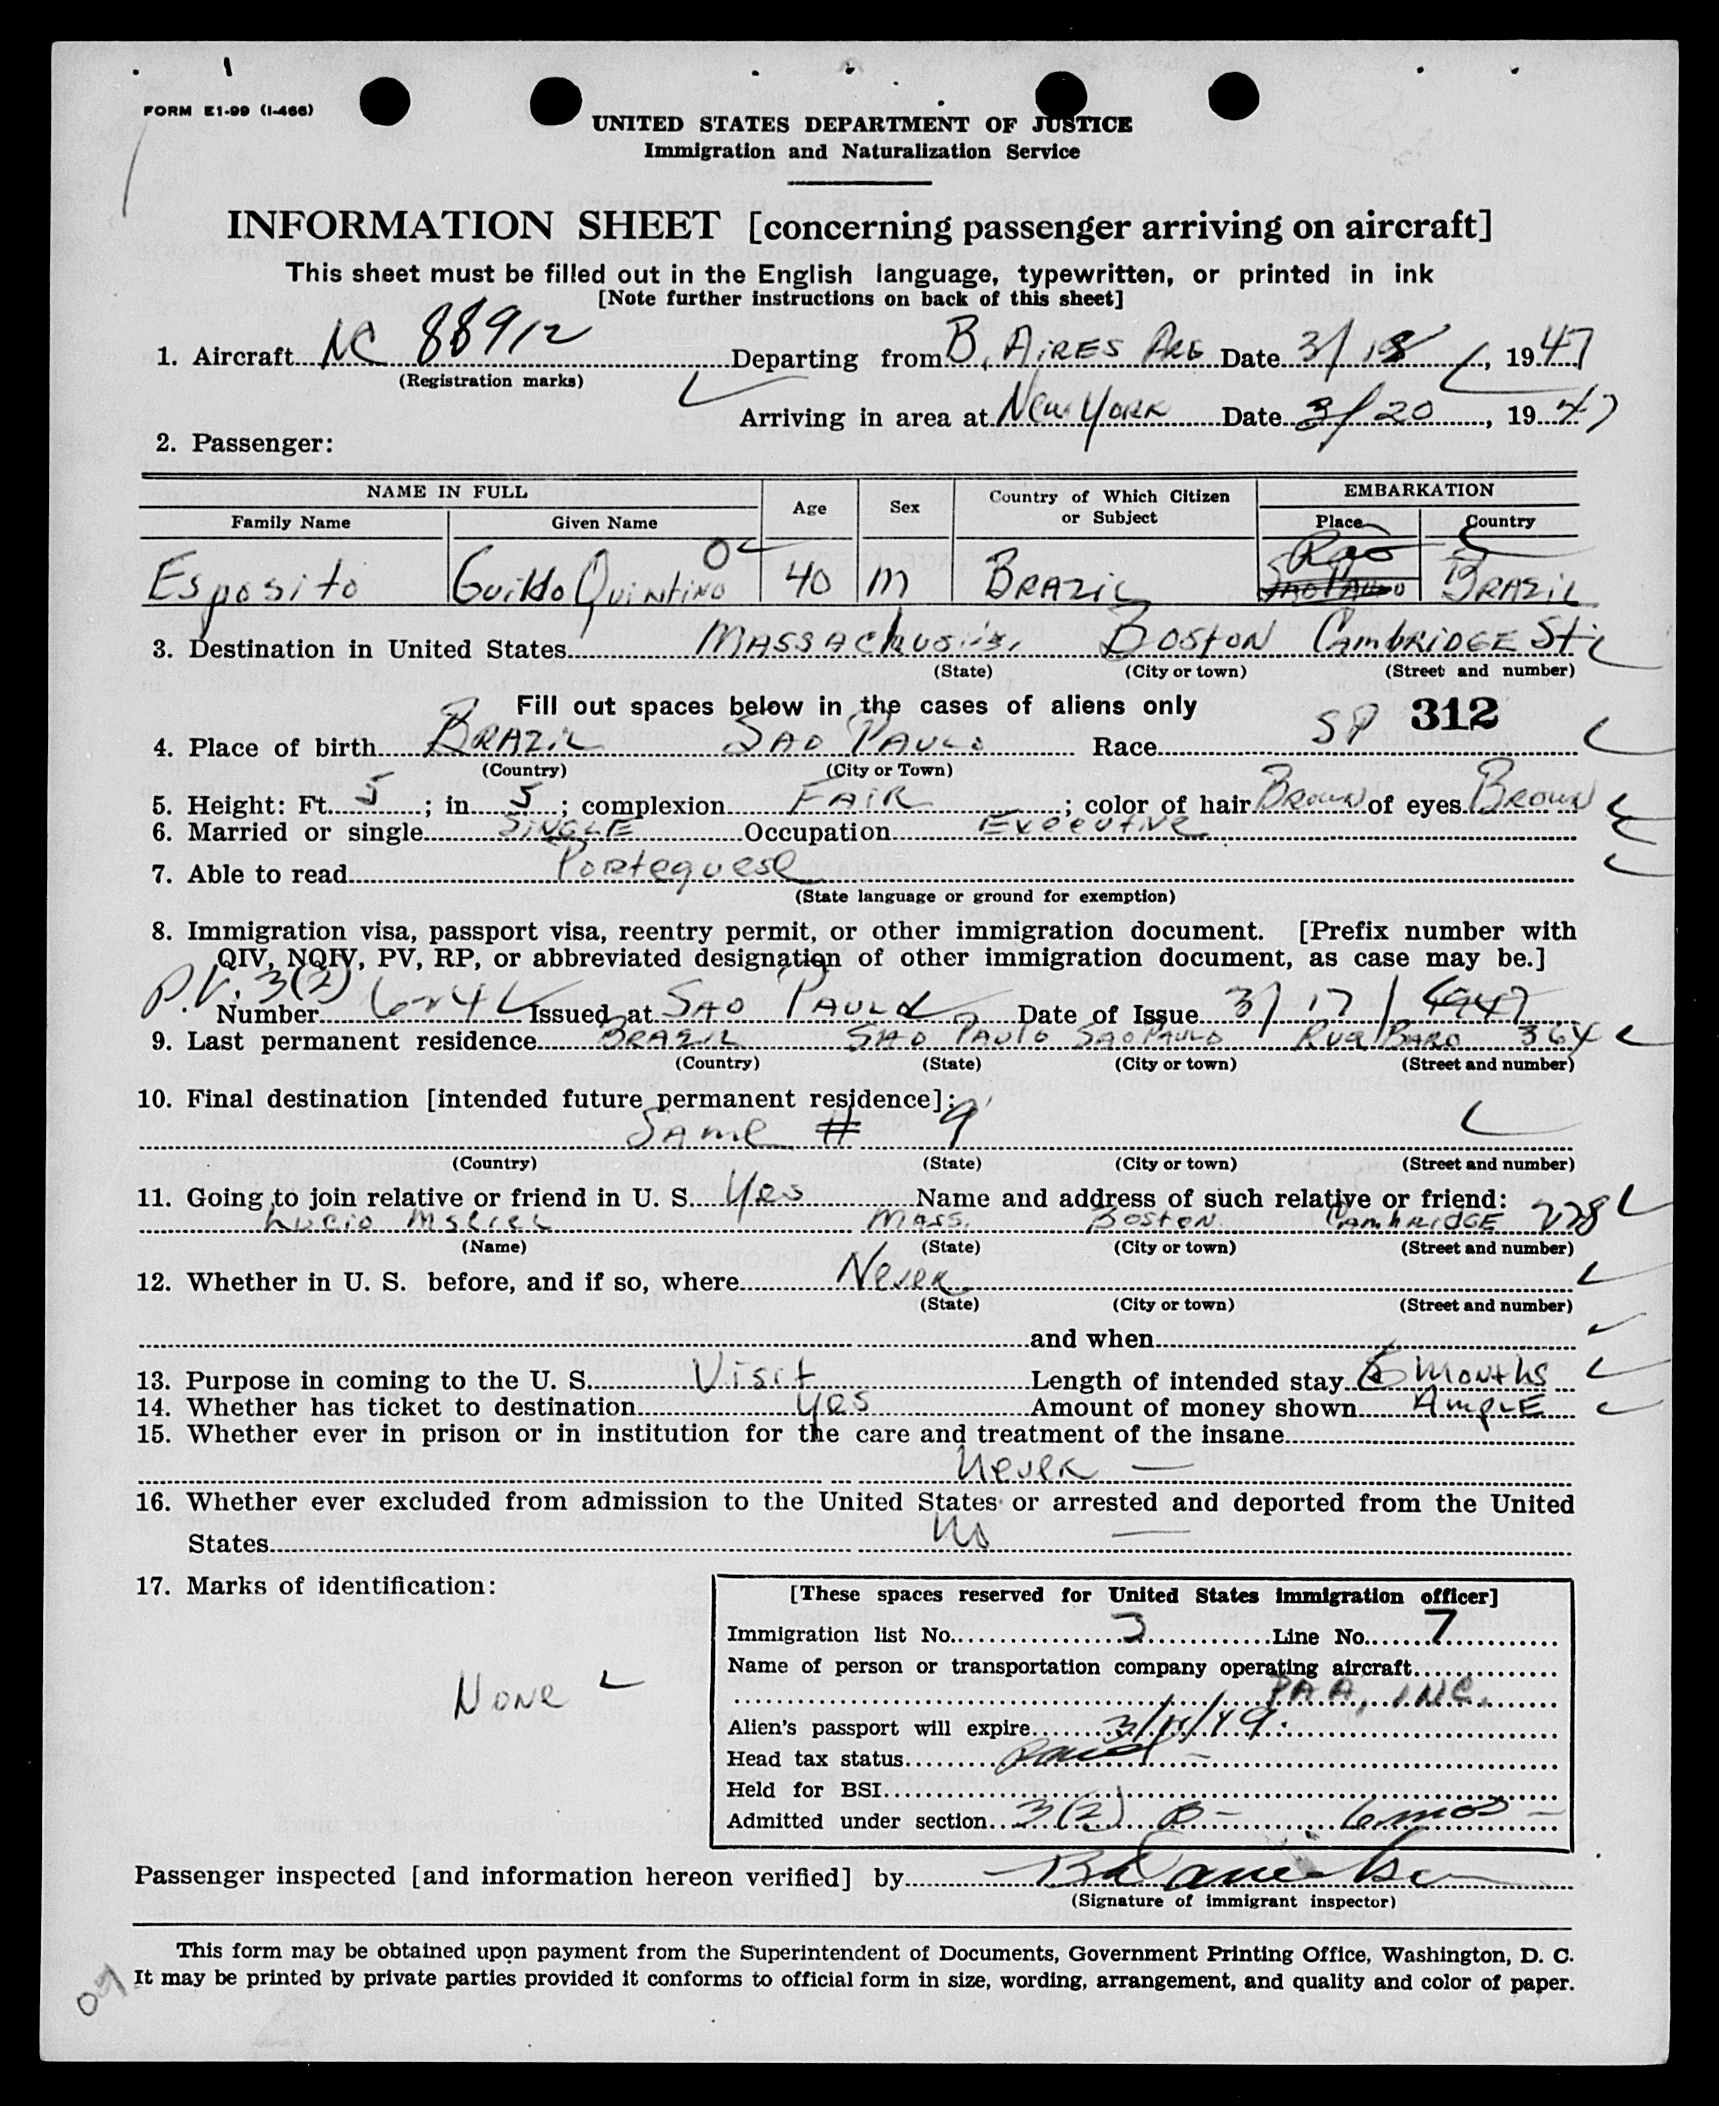 FORM E1-99 (I-466)
UNITED STATES DEPARTMENT OF JUSTICE
Immigration and Naturalization Service
INFORMATION SHEET [concerning passenger arriving on aircraft]
This sheet must be filled out in the English language, typewritten, or printed in ink
[Note further instructions on back of this sheet]
1. Aircraft NC 88912 Departing from B. AIRES ARG Date 3/18, 1947
(Registration marks)
Arriving in area at New York Date 3/20, 1947
2. Passenger:
NAME IN FULL Age Sex Country of Which Citizen or Subject EMBARKATION
Family Name Given Name Place Country
Esposito Guildo Quintino 40 M BRAZIL Rio BRAZIL
3. Destination in United States Boston CAMBRIDGE St
(State) (City or town) (Street and number)
Fill out spaces below in the cases of aliens only
312
4. Place of birth BRAZIL SAO PAULO Race SP
(Country) (City or Town)
5. Height: Ft. 5; in. 5; complexion FAIR; color of hair Brown of eyes Brown
6. Married or single SINGLE Occupation Executive
7. Able to read Porteguese
(State language or ground for exemption)
8. Immigration visa, passport visa, reentry permit, or other immigration document. [Prefix number with
QIV, NQIV, PV, RP, or abbreviated designation of other immigration document, as case may be.]
P.V. 3(2)
Number Issued at SAO PAULO Date of Issue 3/17/1947
9. Last permanent residence BRAZIL SAO PAULO SAO PAULO Rua BARO 364
(Country) (State) (City or town) (Street and number)
10. Final destination [intended future permanent residence]:
SAME # 9
(Country) (State) (City or town) (Street and number)
11. Going to join relative or friend in U. S. Yes Name and address of such relative or friend:
Lucio MASS. BOSTON CAMBRIDGE 228
(Name) (State) (City or town) (Street and number)
12. Whether in U. S. before, and if so, where Never
(State) (City or town) (Street and number)
and when
13. Purpose in coming to the U. S. Visit Length of intended stay 6 Months
14. Whether has ticket to destination yes Amount of money shown AMPLE
15. Whether ever in prison or in institution for the care and treatment of the insane
Never —
16. Whether ever excluded from admission to the United States or arrested and deported from the United
States No —
17. Marks of identification:
None
[These spaces reserved for United States immigration officer]
Immigration list No. 3 Line No. 7
Name of person or transportation company operating aircraft
PAA, INC.
Alien's passport will expire
Head tax status Paid -
Held for BSI
Admitted under section 3(2) B - 6 mos -
Passenger inspected [and information hereon verified] by
(Signature of immigrant inspector)
This form may be obtained upon payment from the Superintendent of Documents, Government Printing Office, Washington, D. C.
It may be printed by private parties provided it conforms to official form in size, wording, arrangement, and quality and color of paper.